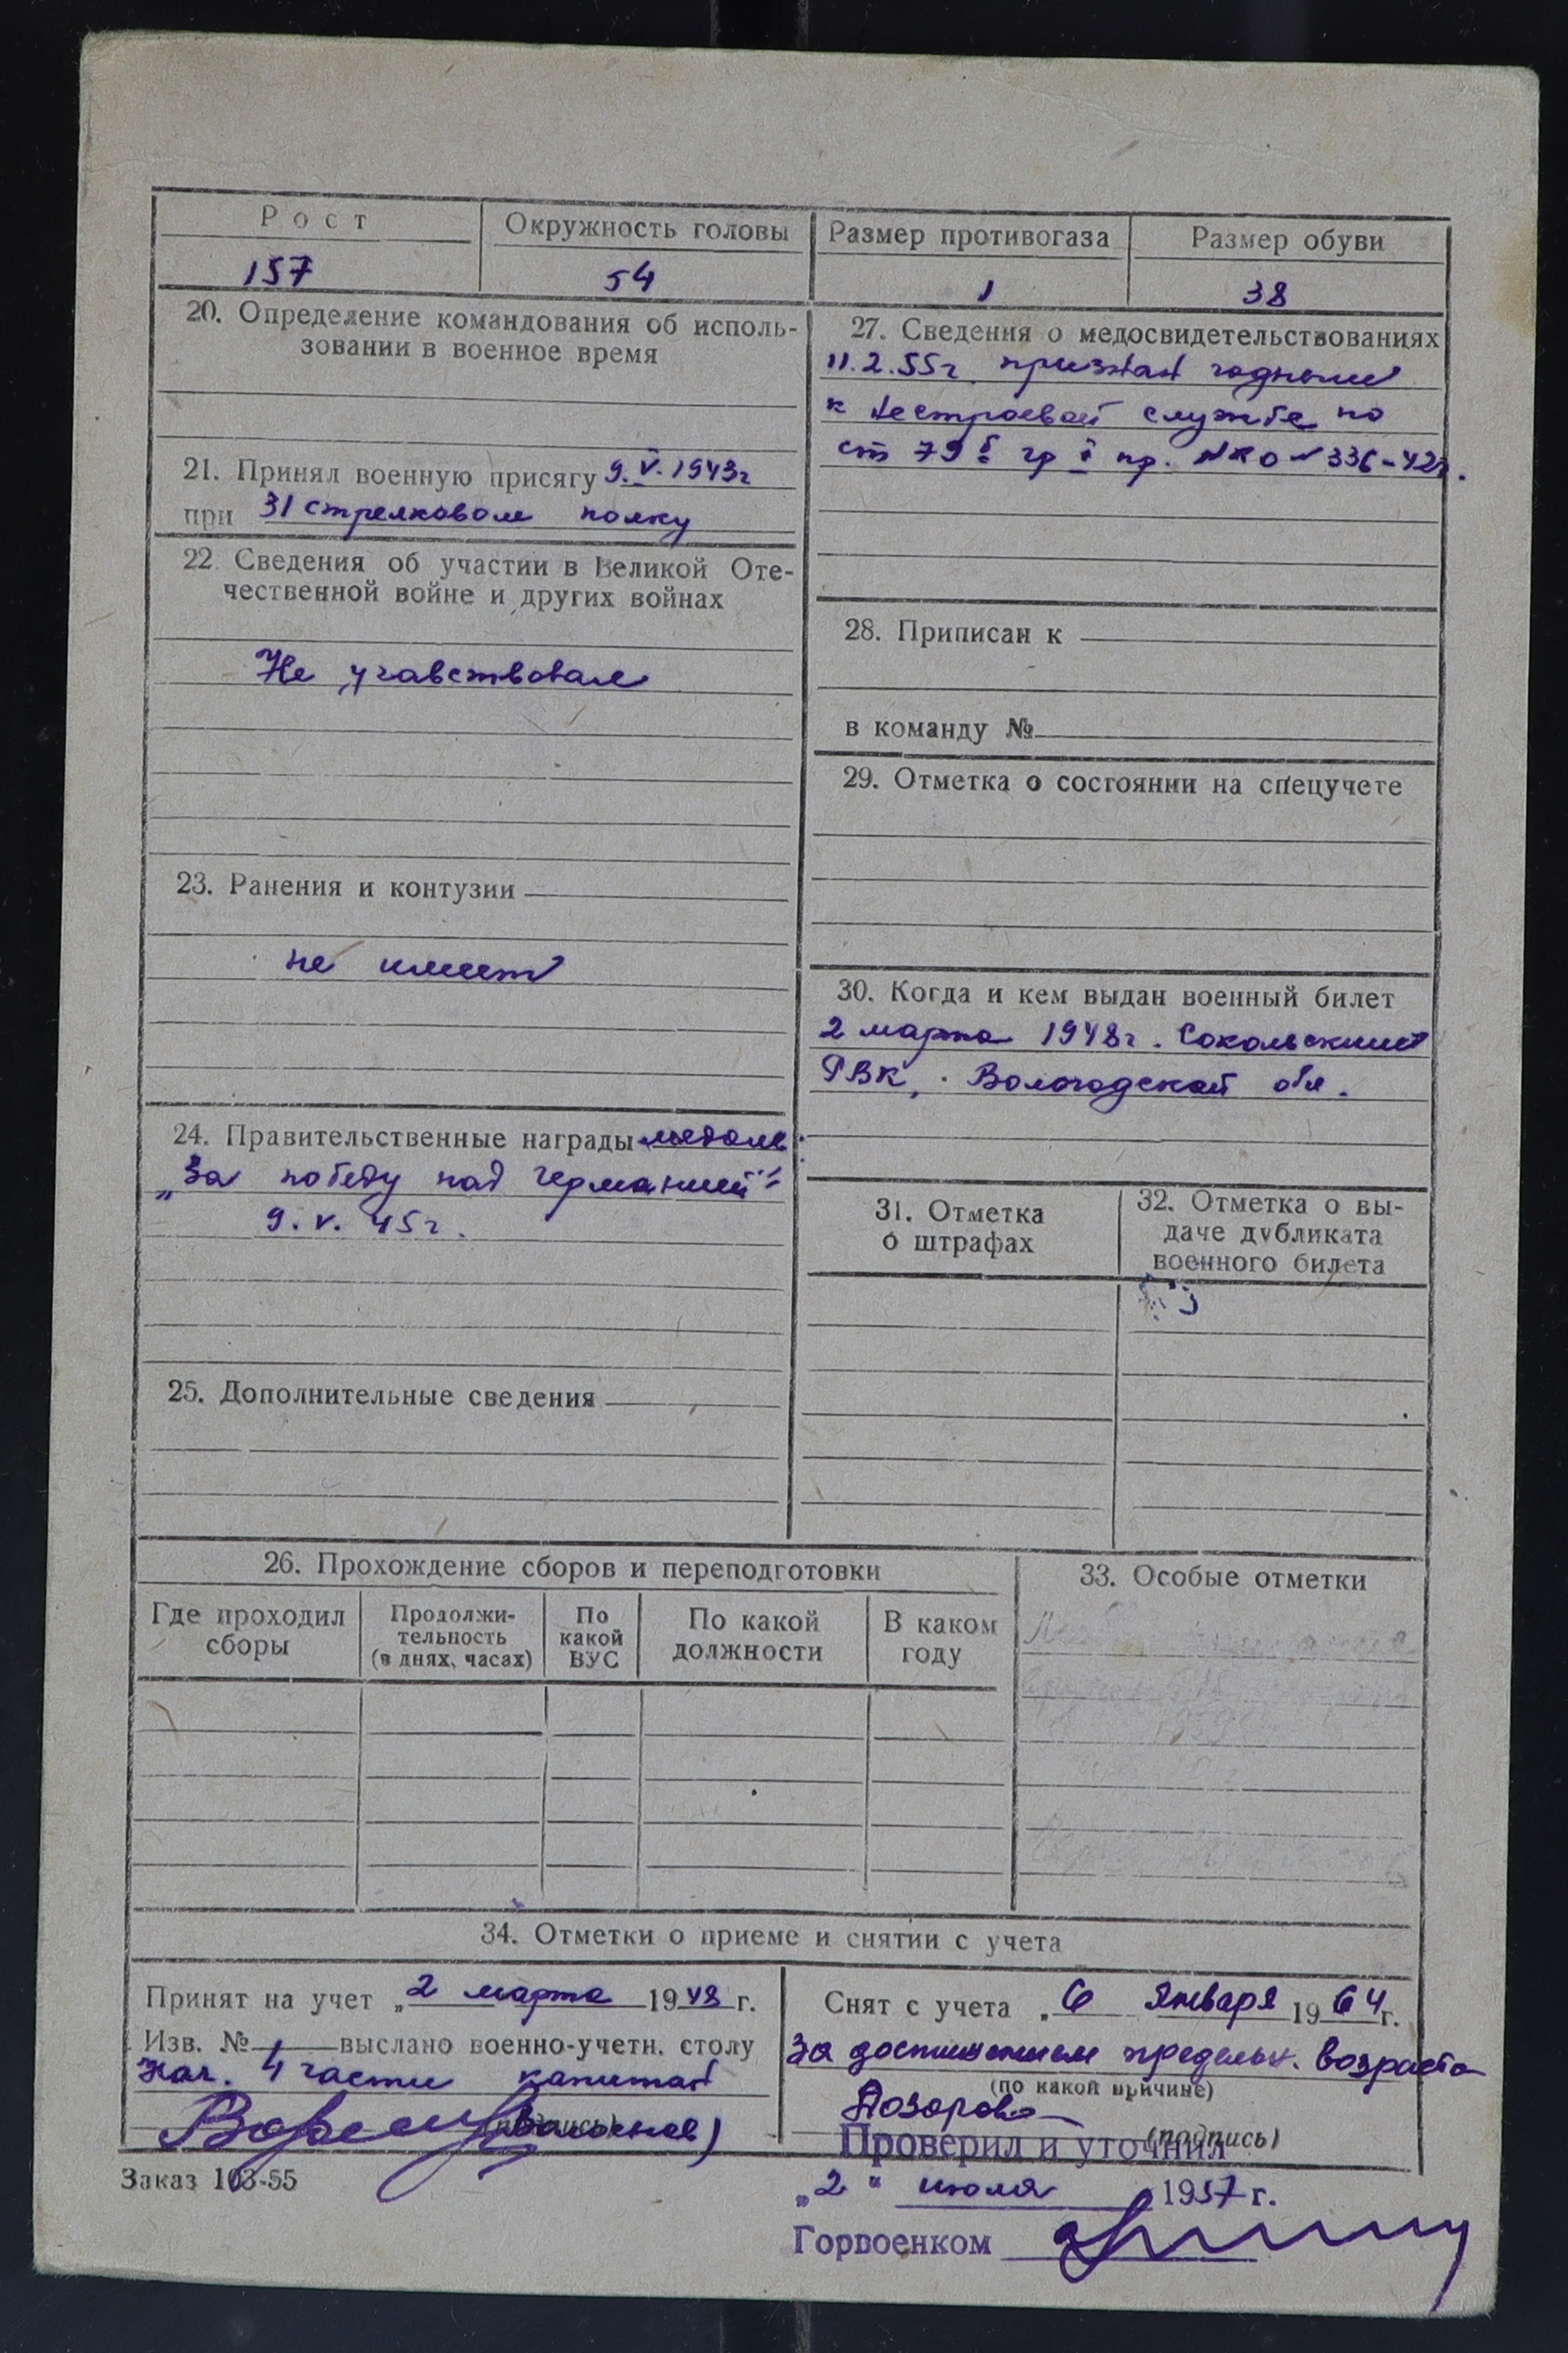 Рост
Окружность головы
Размер противогаза
Размер обуви
157
54
1
38
20. Определение командования об исполь-
зовании в военное время
21. Принял военную присягу 9.V.1943г
при 31 стрелковом полку
22. Сведения об участии в Великой Оте-
чественной войне и других войнах
Не учавствовал
23. Ранения и контузии
не имеет
24. Правительственные награды медаль:
„За победу над Германией"
9.V.45г.
25. Дополнительные сведения
27. Сведения о медосвидетельствованиях
11.2.55г. признан годным
к нестроевой службе по
ст 79б гр I пр. НКО № 336-42г.
28. Приписан к
в команду №
29. Отметка о состоянии на спецучете
30. Когда и кем выдан военный билет
2 марта 1948г. Сокольским
РВК, Вологодской обл.
31. Отметка
о штрафах
32. Отметка о вы-
даче дубликата
военного билета
26. Прохождение сборов и переподготовки
Где проходил
сборы
Продолжи-
тельность
(в днях, часах)
По
какой
ВУС
По какой
должности
В каком
году
33. Особые отметки
34. Отметки о приеме и снятии с учета
Принят на учет „2 марта 1948 г.
Изв. № выслано военно-учетн. столу
Нач. 4 части капитан
(подпись)
Снят с учета „6 января 1964 г.
За достижением предельн. возраста
(по какой причине)
Дозорова
(подпись)
Заказ 103-55
Проверил и уточнил
„2" июля 1957 г.
Горвоенком